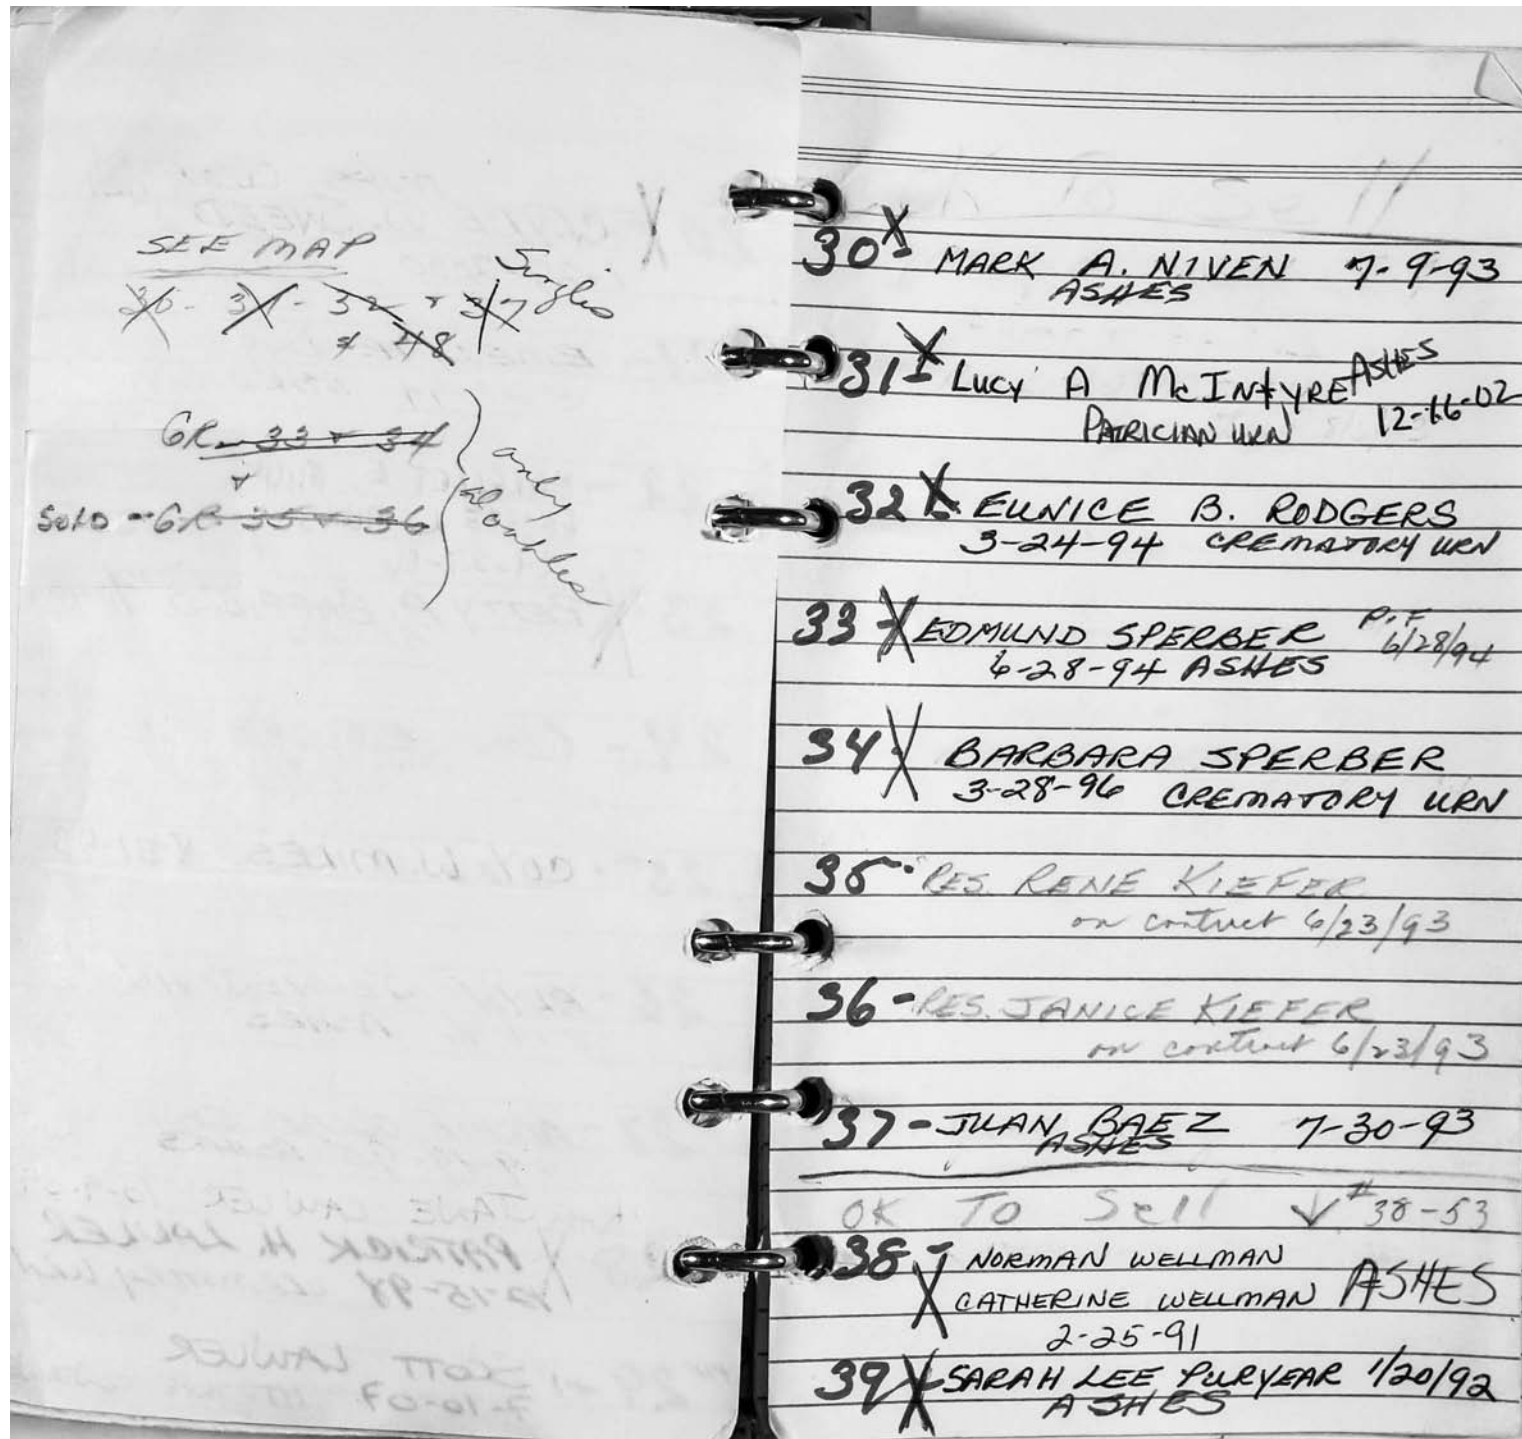 SEE MAP
Singles
30 - 31 - 32 + 37
+ 48
GR. 33 + 34
+
SOLD - GR. 35 + 36
only
doubles
30 X - MARK A. NIVEN 7-9-93
ASHES
31 X - LUCY A McINTYRE ASHES
PATRICIAN URN 12-16-02
32 X - EUNICE B. RODGERS
3-24-94 CREMATORY URN
33 - X EDMUND SPERBER P.F
6-28-94 ASHES 6/28/94
34 X BARBARA SPERBER
3-28-96 CREMATORY URN
35 - RES. RENE KIEFER
on contract 6/23/93
36 - RES. JANICE KIEFER
on contract 6/23/93
37 - JUAN BAEZ 7-30-93
ASHES
OK TO Sell ↓ # 38-53
38 - NORMAN WELLMAN
X CATHERINE WELLMAN ASHES
2-25-91
39 X - SARAH LEE PURYEAR 1/20/92
ASHES